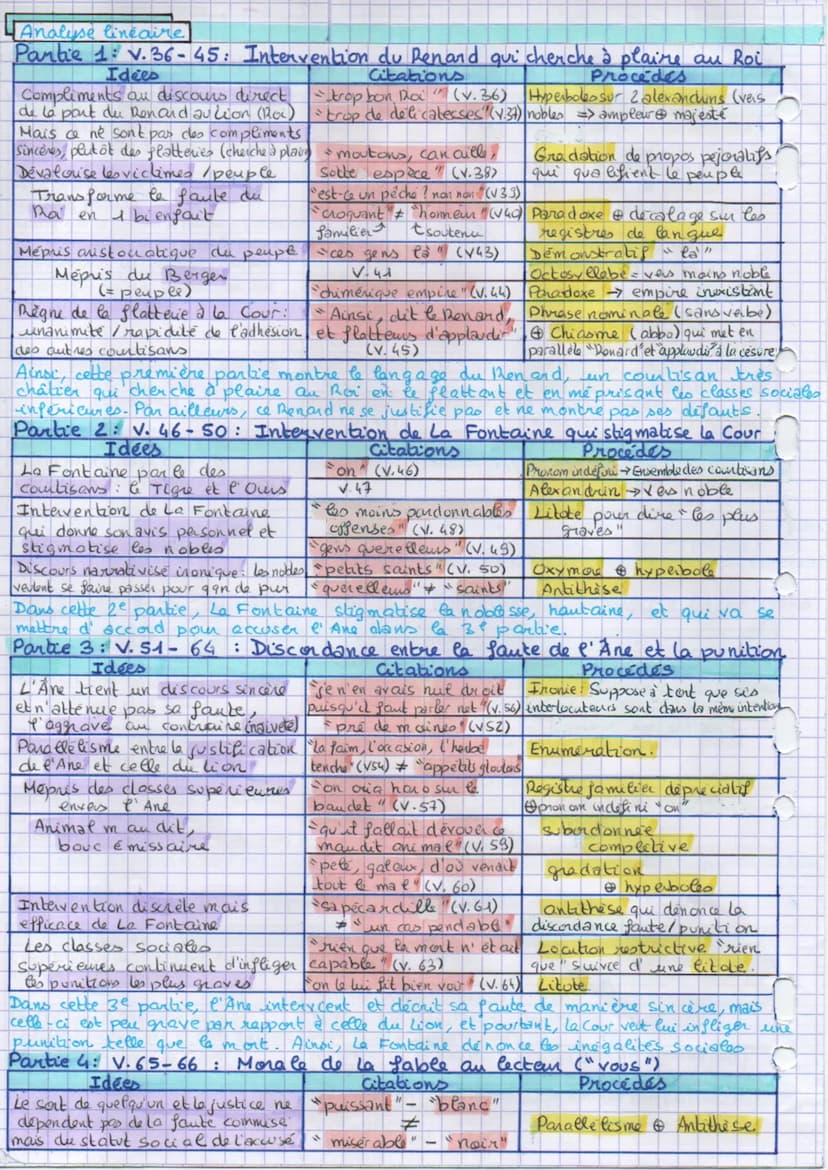 Analyse linéaire
Partie 1: V.36-45: Intervention du Renard qui cherche à plaire au Roi
Idées Citations Procédés
Compliments au discours direct de la part du Renard au Lion (Roi)
Mais ce né sont pas des compliments sincères, plutôt des flatteries (cherche à plaire)
"trop bon Roi" (v.36)
"trop de délicatesses" (v.37)
Hyperboles sur 2 alexandrins (vers nobles => ampleur ⊕ majesté
Dévalorise les victimes / peuple
"moutons, canaille, sotte espèce" (v.38)
Gradation de propos péjoratifs qui qualifient le peuple
Transforme la faute du Roi en 1 bienfait
"est-ce un péché ? non non" (v39)
"croquant" ≠ "honneur" (v40)
familier soutenu
Paradoxe ⊕ décalage sur les registres de langue
Mépris aristocratique du peuple
"ces gens là" (v43)
Démonstratif "là"
Mépris du Berger (= peuple)
V.41
Octosyllabe = vers moins noble
"chimérique empire" (v.44)
Paradoxe → empire inexistant
Règne de la flatterie à la Cour: unanimité / rapidité de l'adhésion des autres courtisans
"Ainsi, dit le Renard, et flatteurs d'applaudir" (v.45)
Phrase nominale (sans verbe)
⊕ Chiasme (abba) qui met en parallèle "Renard" et "applaudir" à la césure
Ainsi, cette première partie montre le langage du Renard, un courtisan très
châtier qui cherche à plaire au Roi en le flattant et en méprisant les classes sociales
inférieures. Par ailleurs, ce Renard ne se justifie pas et ne montre pas ses défauts.
Partie 2: V. 46-50: Intervention de La Fontaine qui stigmatise la Cour
Idées Citations Procédés
La Fontaine parle des courtisans: le Tigre et l'Ours
"on" (v.46)
V.47
Pronom indéfini → Ensemble des courtisans
Alexandrin → Vers noble
Intervention de La Fontaine qui donne son avis personnel et stigmatise les nobles
"les moins pardonnables offenses" (v. 48)
"gens querelleurs" (v. 49)
Litote pour dire "les plus graves"
Discours narrativisé ironique: les nobles veulent se faire passer pour qqn de pur
"petits saints" (v. 50)
"querelleurs" ≠ "saints"
Oxymore ⊕ hyperbole
Antithèse
Dans cette 2e partie, La Fontaine stigmatise la noblesse, hautaine, et qui va se
mettre d'accord pour accuser l'Ane dans la 3e partie.
Partie 3: V.51-64 : Discordance entre la faute de l'Âne et la punition
Idées Citations Procédés
L'Âne tient un discours sincère et n'atténue pas sa faute, l'aggrave au contraire (naïveté)
"je n'en avais nul droit puisqu'il faut parler net" (v.56)
"pré de moines" (v52)
Ironie: Suppose à tort que ses interlocuteurs sont dans la même intention
Parallélisme entre la justification de l'Ane et celle du Lion
"la faim, l'occasion, l'herbe tendre" (v54) ≠ "appétits gloutons
Enumération.
Mépris des classes supérieures envers l'Ane
"on cria haro sur le baudet" (v.57)
Registre familier dépréciatif
⊕ pronom indéfini "on"
Animal maudit, bouc émissaire
"qu'il fallait dévouer ce maudit animal" (v. 59)
subordonnée complétive
"pelé, galeux, d'où venait tout le mal" (v. 60)
gradation
⊕ hyperboles
Intervention discrète mais efficace de La Fontaine
"sa pécardille" (v.61)
≠ "un cas pendable"
antithèse qui dénonce la discordance faute/punition
Les classes sociales supérieures continuent d'infliger les punitions les plus graves
"rien que la mort n'était capable" (v. 63)
Locution restrictive "rien que" suivie d'une litote.
"on le lui fit bien voir" (v.64)
Litote
Dans cette 3e partie, l'Âne intervient et décrit sa faute de manière sincère, mais
celle-ci est peu grave par rapport à celle du Lion, et pourtant, la Cour veut lui infliger une
punition telle que la mort. Ainsi, La Fontaine dénonce les inégalités sociales
Partie 4: V.65-66: Morale de la fable au lecteur ("vous")
Idées Citations Procédés
Le sort de quelqu'un et la justice ne dépendent pas de la faute commise mais du statut social de l'accusé
"puissant" - "blanc"
≠
"misérable" - "noir"
Parallélisme ⊕ Antithèse.